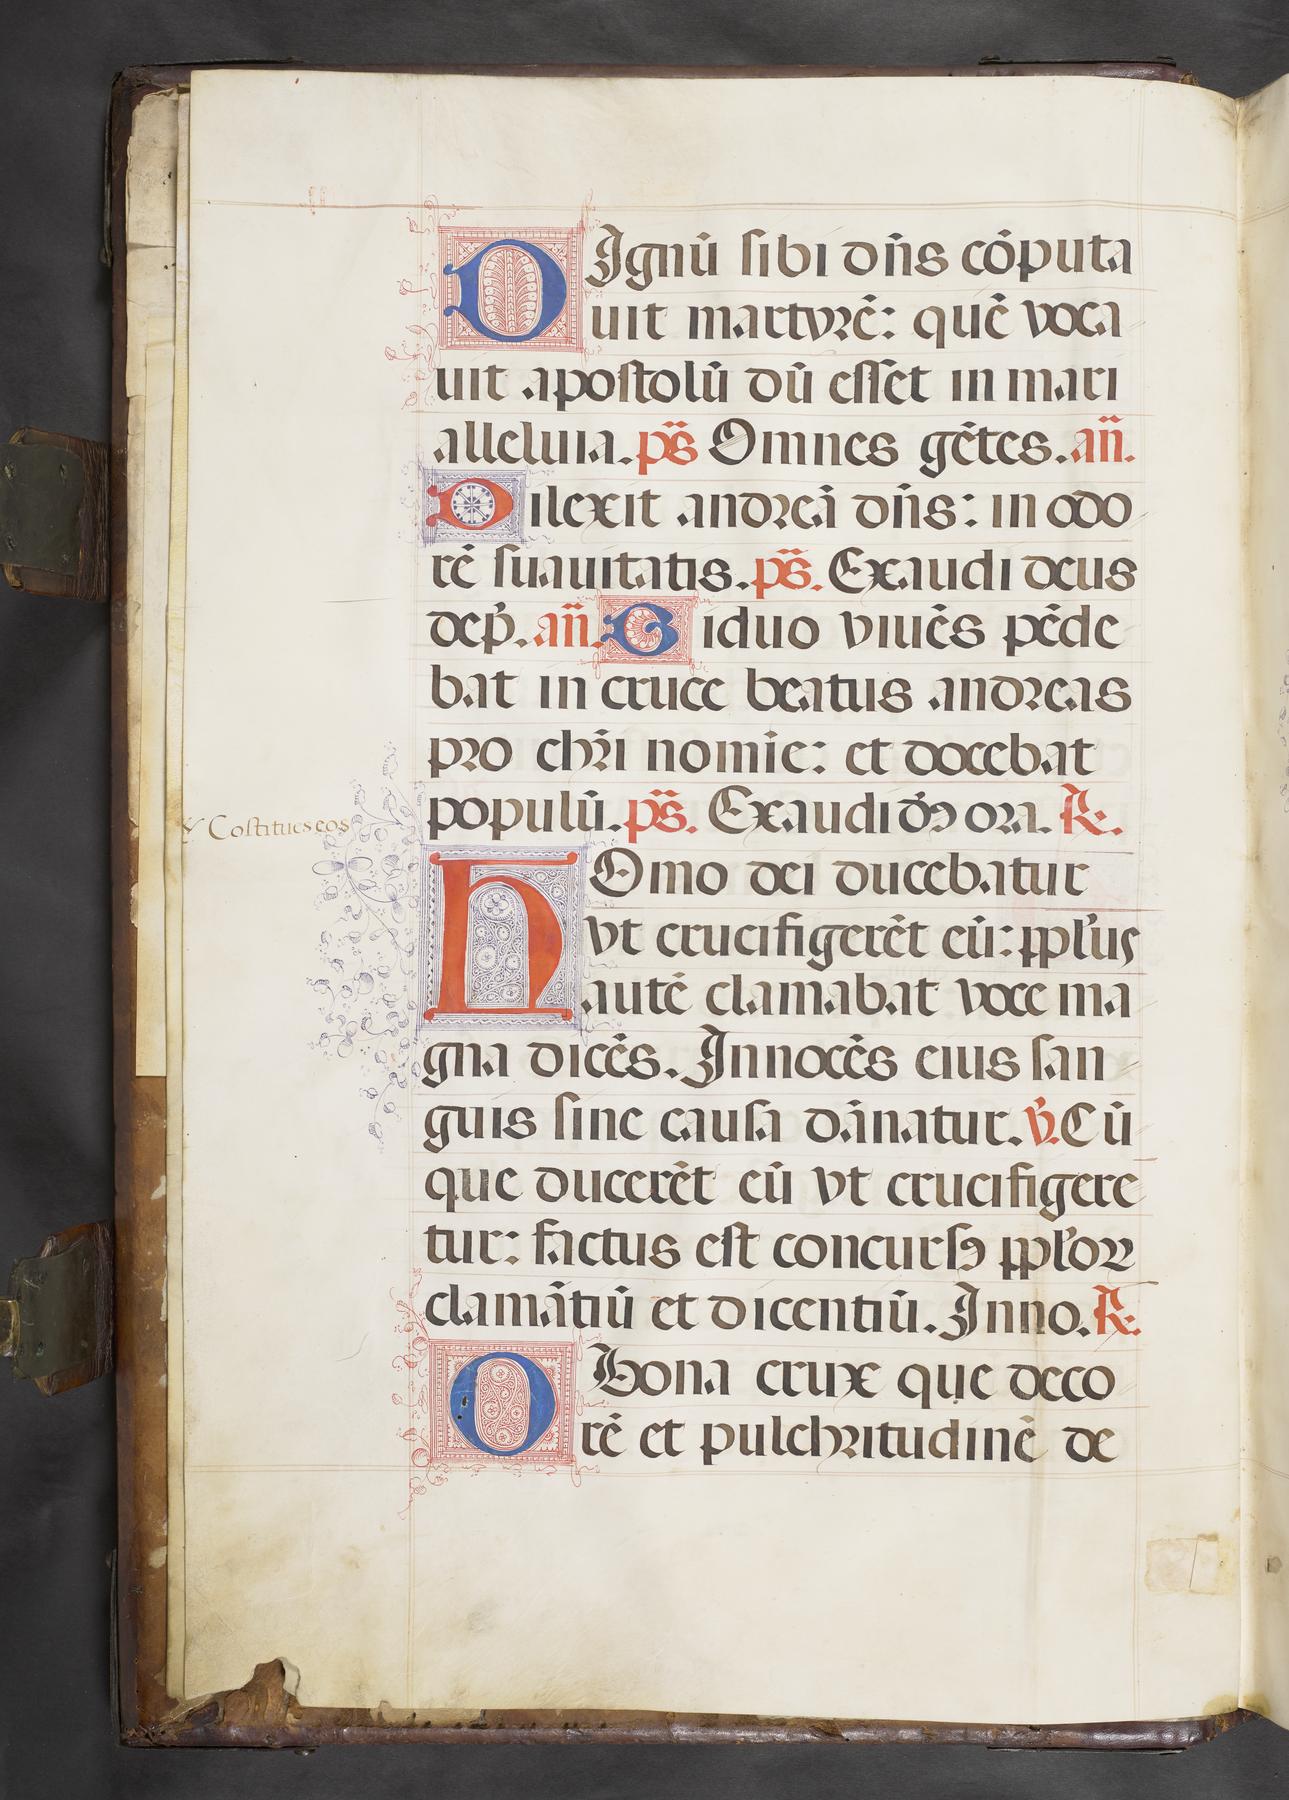 DIgnū sibi dn̄s cōputa
uit martyrē: quē voca
uit apostolū dū esset in mari
alleluia. ps̄ Omnes gētes. an̄.
Dilexit andreā dn̄s: in odo
rē suauitatis. ps̄. Exaudi deus
dep̄. an̄. Biduo viuēs pēde
bat in cruce beatus andreas
pro chr̄i nomīe: et docebat
populū. ps̄. Exaudi d̄ꝰ ora. ℟.
℣ Cōstitues eos
HOmo dei ducebatur
vt crucifigerēt eū: ppl'us
autē clamabat voce ma
gna dicēs. Innocēs eius san
guis sine causa dānatur. ℣. Cū
que ducerēt eū vt crucifigere
tur: factus est concursꝰ ppl'oꝝ
clamātiū et dicentiū. Inno. ℟.
O Bona crux que deco
rē et pulchritudinē de